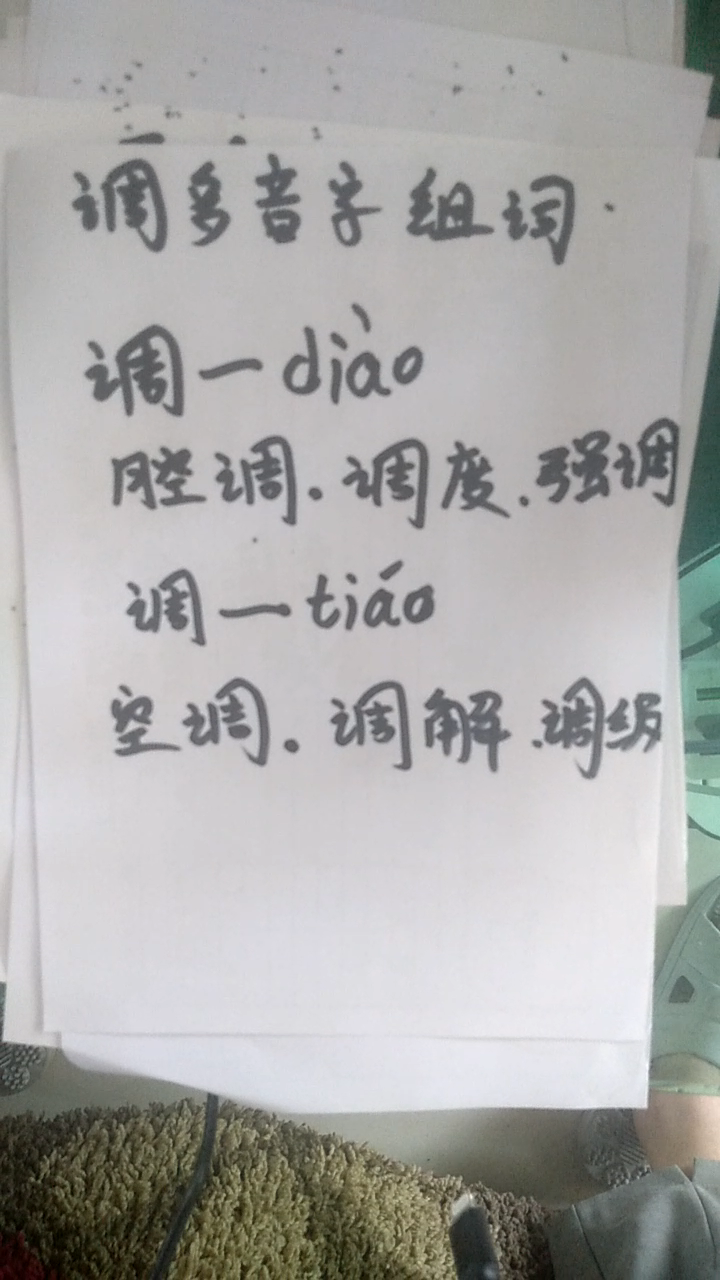 调多音字组词.
调一diào
腔调.调度.强调
调一tiáo
空调.调解.调级